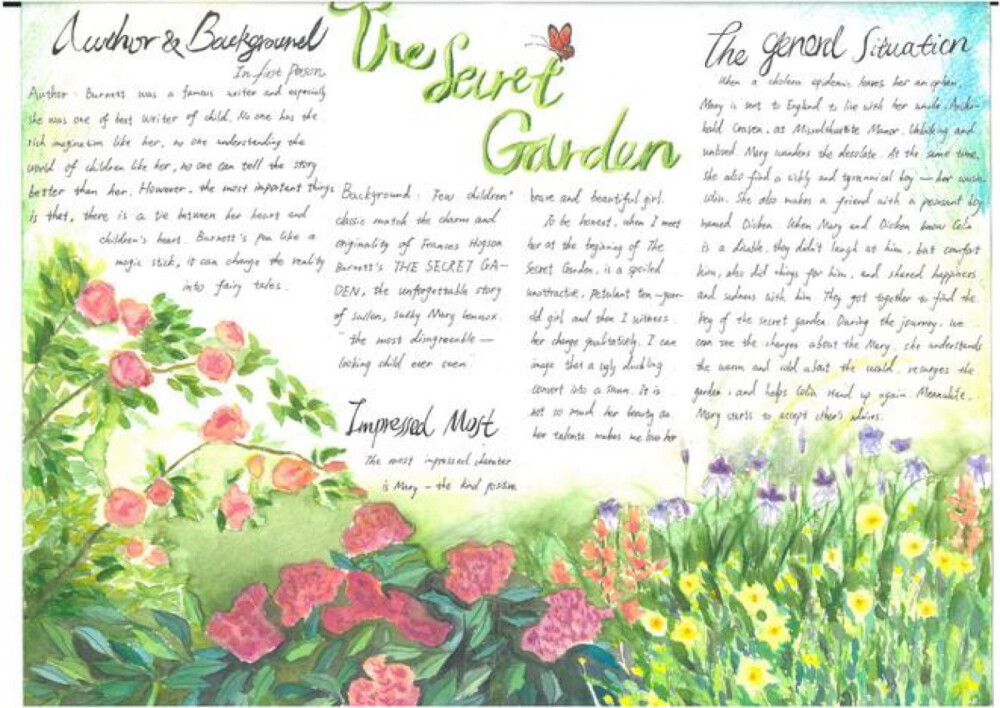 The Secret
Garden
Author & Background
In first Person
Author: Burnett was a famous writer and especially
she was one of best writer of child. No one has the
rich imagination like her, no one understanding the
world of children like her, no one can tell the story
better than her. However, the most important things
is that, there is a tie between her heart and
children's heart. Burnett's pen like a
magic stick, it can change the reality
into fairy tales.
Background: Few children'
classic match the charm and
originality of Frances Hogson
Burnett's THE SECRET GA-
DEN, the unforgettable story
of sullen, sulky Mary Lennox.
"the most disagreeable —
looking child ever seen"
Impressed Most
The most impressed charater
is Mary - the kind
brave and beautiful girl.
To be honest, when I meet
her at the begining of The
Secret Garden, is a spoiled
unattractive, petulant ten-year-
old girl and then I witness
her change qualitatively. I can
image that a ugly duckling
convert into a swan. It is
not so much her beauty as
her talents makes me love her
The general Situation
When a cholera epidemic leaves her an orphan,
Mary is sent to England to live with her uncle, Archi-
bald Craven, at Manor. Unliking and
unloved. Mary wanders the desolate. At the same time,
she also find a sickly and tyrannical boy — her cousin
colin. She also makes a friend with a peasant boy
named Dicken. When Mary and Dicken know Colin
is a disable, they didn't laugh at him, but comfort
him, also did things for him, and shared happiness
and sadness with him. They got together to find the
key of the secret garden. During the journey, we
can see the changes about the Mary. she understands
the warm and cold about the world, the
garden, and helps Colin stand up again. Meanwhile,
Mary starts to accept other's